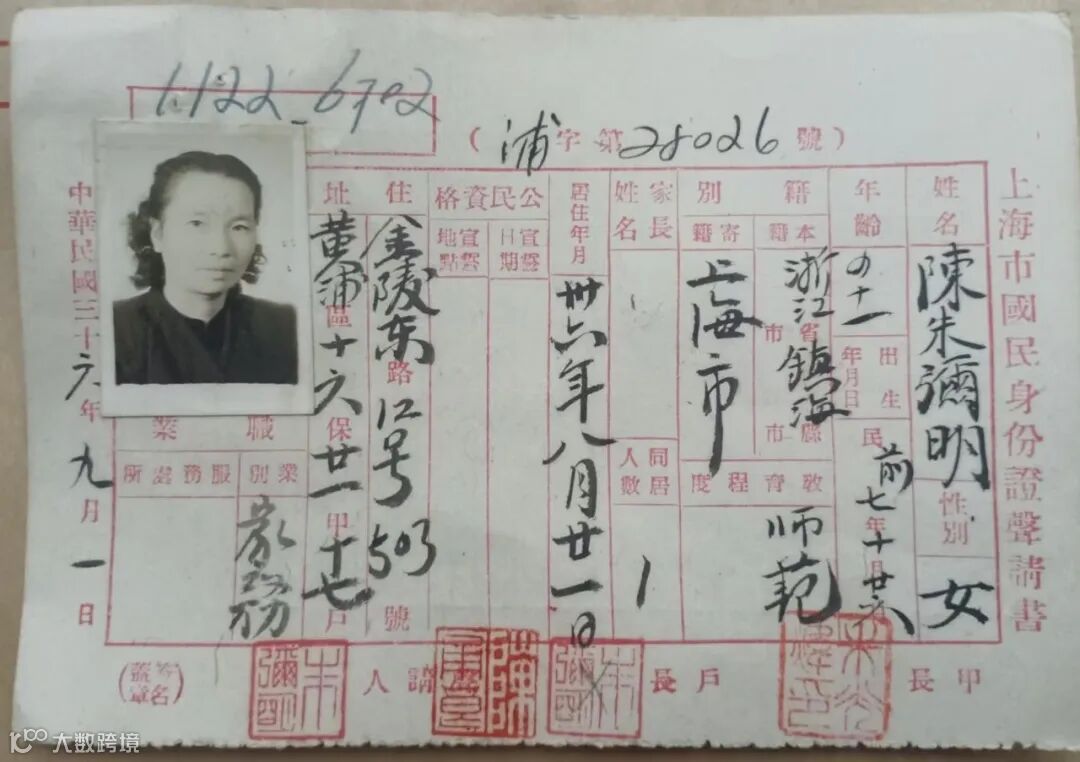 1122-6702
(浦字第28026號)
上海市國民身份證聲請書
姓名 陳朱彌明 性別 女
年齡 四十一 出生年月日 民前七年十月廿六
籍別 本籍 浙江省鎮海縣市 寄籍 上海市
教育程度 师范
家長姓名
同居人數 1
居住年月 卅六年八月廿一日
公民資格 宣誓日期 宣誓地點
住址 金陵东路 弄 号 503 號
黄浦區十六保廿一甲十七戶
職業 業別 家务 服務處所
中華民國三十六年九月一日
甲長
戶長 朱彌明
請人 朱彌明
(簽名蓋章)
大数跨境